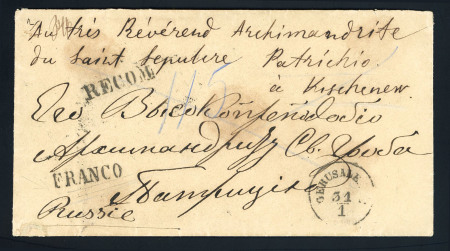 Au très Révérend Archimandrite
du Saint Sepulcre Patrichio
à Kischenew.
RECOM.
115
Его Высокопреподобію
Архимандриту Св. Гроба
FRANCO
Патрицію
Russie
JERUSALEM
31
1